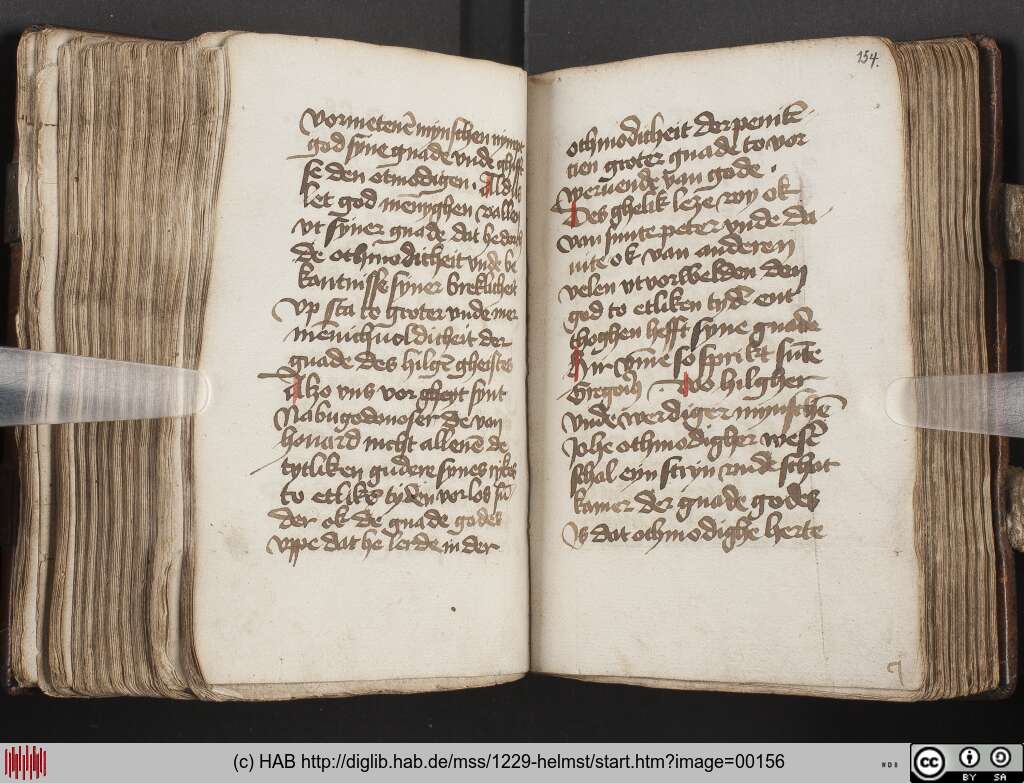 vormetenē mynschen nympt
god syne gnade vnde ghifft
se den otmodigen. Aldus
let god menyghen vallen
vt syner gnade dat he dorch
de othmodicheit vnde be
kantnisse syner breklicheit
vp sta to groter vnde mer
menichuoldicheit der
gnade des hilgē gheistes
Alzo vns vor gheyt synt
Nabugodonoser de van
houard nicht allenē de
tytliken gudere synes rykes
to etlikē tyden vorlos sū
der ok de gnade godes
vppe dat he lerde in der
154.
othmodicheit der penitē
cien groter gnade to vor
weruende van gode.
Des ghelik leze wy ok
van sunte peter vnde da
uite ok van anderen
velen vtvorwelden den
god to etliken tydē ent
thoghen hefft syne gnade
Hir vmme so sprikt sūte
Gregorius. Wo hilgher
vnde werdiger mynschē
Johe othmodigher wesē
schal eyn scryn vnde schat
kamer der gnade godes
Is dat othmodighe herte
(c) HAB http://diglib.hab.de/mss/1229-helmst/start.htm?image=00156
WDB
CC
BY SA